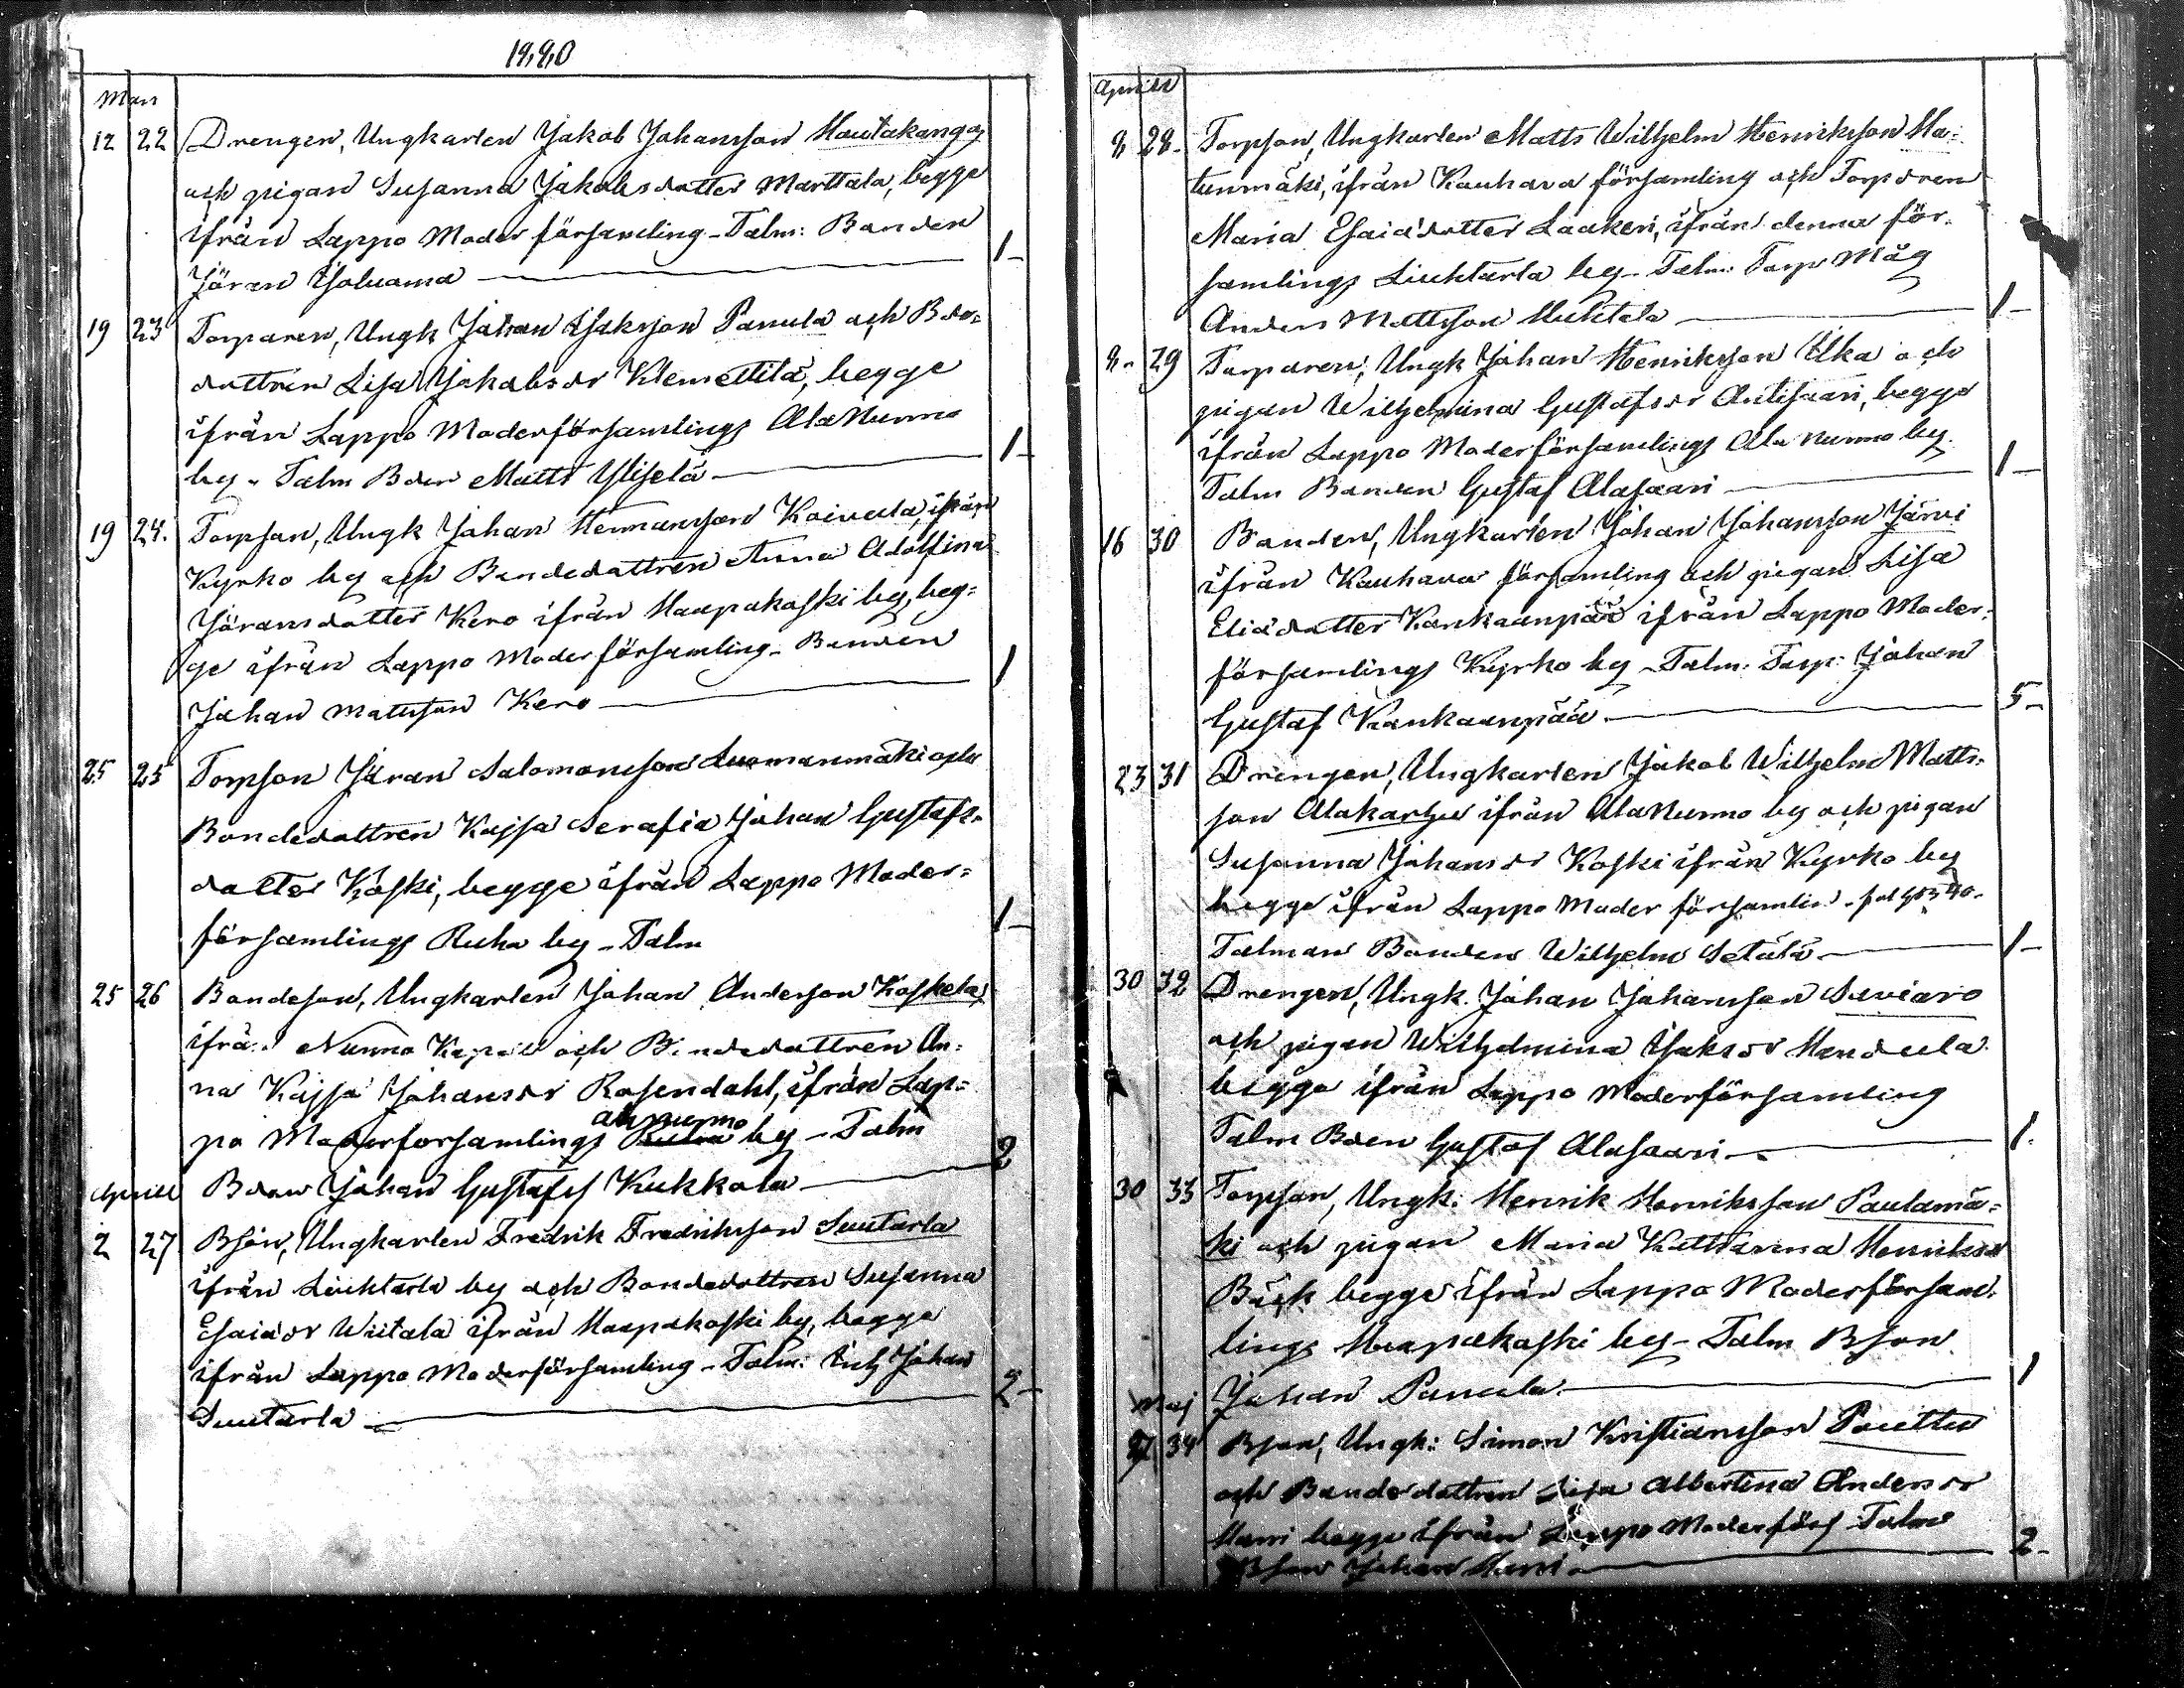 1880
Mars
12 22 Drengen, Ungkarlen Jakob Johansson Hautakangas
och pigan Susanna Jakobsdotter Marttala, begge
ifrån Lappo Moder församling - Talm: Bonden
Jöran Yoluoma 1-
19 23 Torparen, Ungk Johan Isaksson Panula och Bdo-
dottren Lisa Jakobsdr Klemettilä, begge
ifrån Lappo Moderförsamlings Ala Nurmo
by - Talm Bden Matts Yliselä 1-
19 24. Torpson, Ungk Johan Hermansson Koivula, ifrån
Kyrko by och Bondedottren Anna Adolfina
Jöransdotter Kero ifrån Haapakoski by, beg=
ge ifrån Lappo Moderförsamling - Bonden
Johan Mattsson Kero 1
25 25 Torpson Jöran Salomonsson Luomanmäki och
Bondedottren Kajsa Serafia Johan Gustafs-
dotter Koski, begge ifrån Lappo Moder=
församlings Ruha by - Talm 1-
25 26 Bondeson, Ungkarlen Johan Andersson Koskela
ifrån Nurmo Kapell och Bondedottren An-
na Kajsa Johansdr Rosendahl, ifrån Lap=
ala nurmo
po Moderforsamlings by - Talm 2
April Bden Johan Gustafss Kukkola
2 27 Bson, Ungkarlen Fredrik Fredriksson Luutarla
ifrån Liuhtarla by och Bondedottren Susanna
Esaiadr Wiitala ifrån Haapakoski by, begge
ifrån Lappo Moderförsamling - Talm: Johan
Luutarla 2-
April
8 28- Torpson, Ungkarlen Matts Wilhelm Henriksson Ha-
tunmäki, ifrån Kauhava församling och Torpdren
Maria Esaiadotter Laakeri, ifrån denna för-
samlings Liuhtarla by - Talm: Torp Måg
Anders Mattsson Huhtala 1-
8- 29 Torparen, Ungk Johan Henriksson Ilka och
pigan Wilhelmina Gustafsdr Antisaari, begge
ifrån Lappo Moderförsamlings Ala Nurmo by.
Talm Bonden Gustaf Alasaari 1-
16 30 Bonden, Ungkarlen Johan Johansson Järvi
ifrån Kauhava församling och pigan Lisa
Eliadotter Kankaanpää ifrån Lappo Moder-
församlings Kyrko by - Talm: Torp: Johan
Gustaf Kankaanpää 5-
23 31 Drengen, Ungkarlen Jakob Wilhelm Matts-
son Alakarhu ifrån Ala Nurmo by och pigan
Susanna Johansdr Koski ifrån Kyrko by
begge ifrån Lappo Moder församlin
Talman Bonden Wilhelm Setälä 1-
30 32 Drengen, Ungk. Johan Johansson Saviaro
och pigan Wilhelmina Isaksdr Handula
begge ifrån Lappo Moderförsamling
Talm Bden Gustaf Alasaari 1.
30 33 Torpson, Ungk: Henrik Henriksson Pautamä=
ki och pigan Maria Katharina Henriksd
Bäck begge ifrån Lappo Moderförsam-
lings Haapakoski by - Talm Bson
Johan Panula 1
Maj
7 34 Bson, Ungk: Simon Kristiansson Pouttu
och Bondedottren Lisa Albertina Andersdr
Harri begge ifrån Lappo Moderförs Talm
Bson Johan Harri 2-